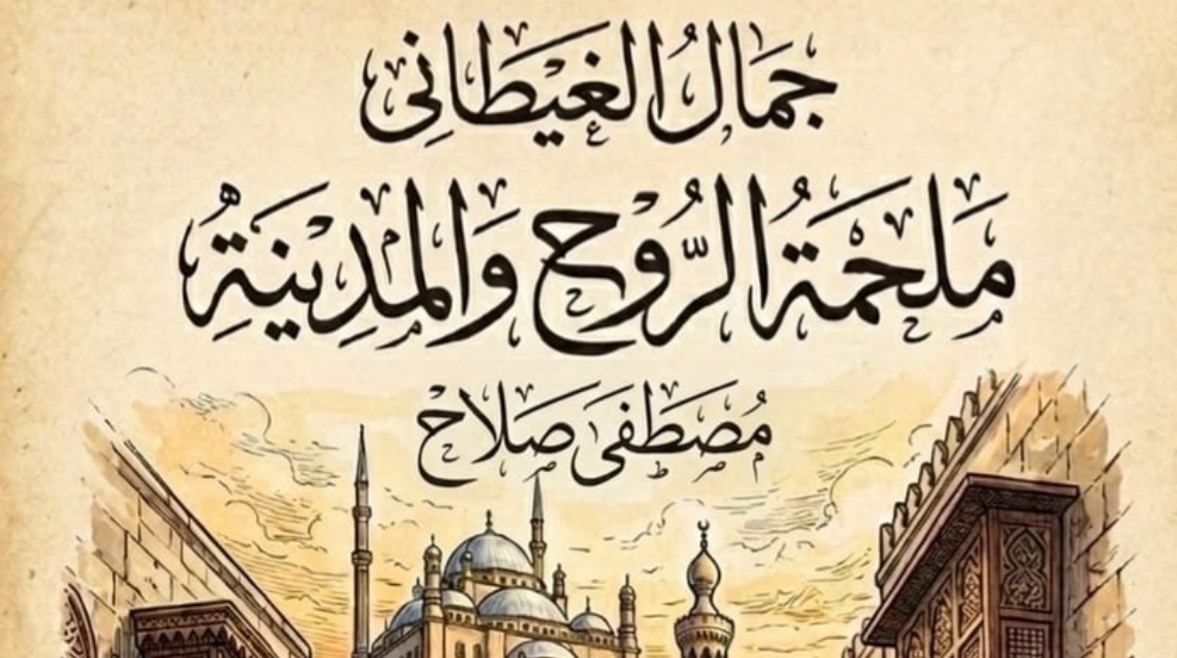 جَمَالُ الغَيْطَانِي
مَلحَمَةُ الرُّوْحِ وَالمَدِينَةِ
مُصْطَفَى صَلَاح